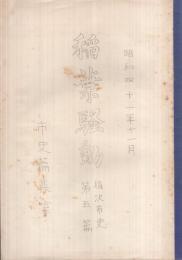 昭和四十一年十一月
稲葉騒動
稲沢市史
第五篇
市史